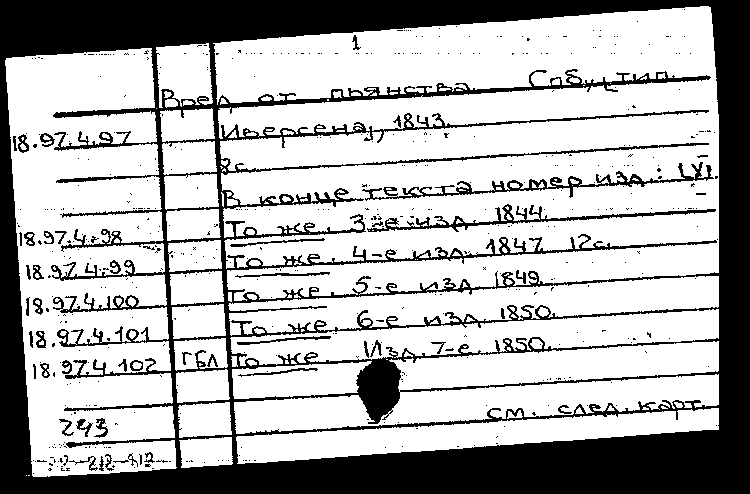 1
Вред от пьянства. Спб., тип.
18.97.4.97 Иверсена, 1843.
8с.
В конце текста номер изд.: LVI
18.97.4.98 То же. 3-е изд. 1844.
18.97.4.99 То же. 4-е изд. 1847. 12с.
18.97.4.100 То же. 5-е изд. 1849.
18.97.4.101 То же. 6-е изд. 1850.
18.97.4.102 ГБЛ То же. Изд. 7-е. 1850.
243 см. след. карт.